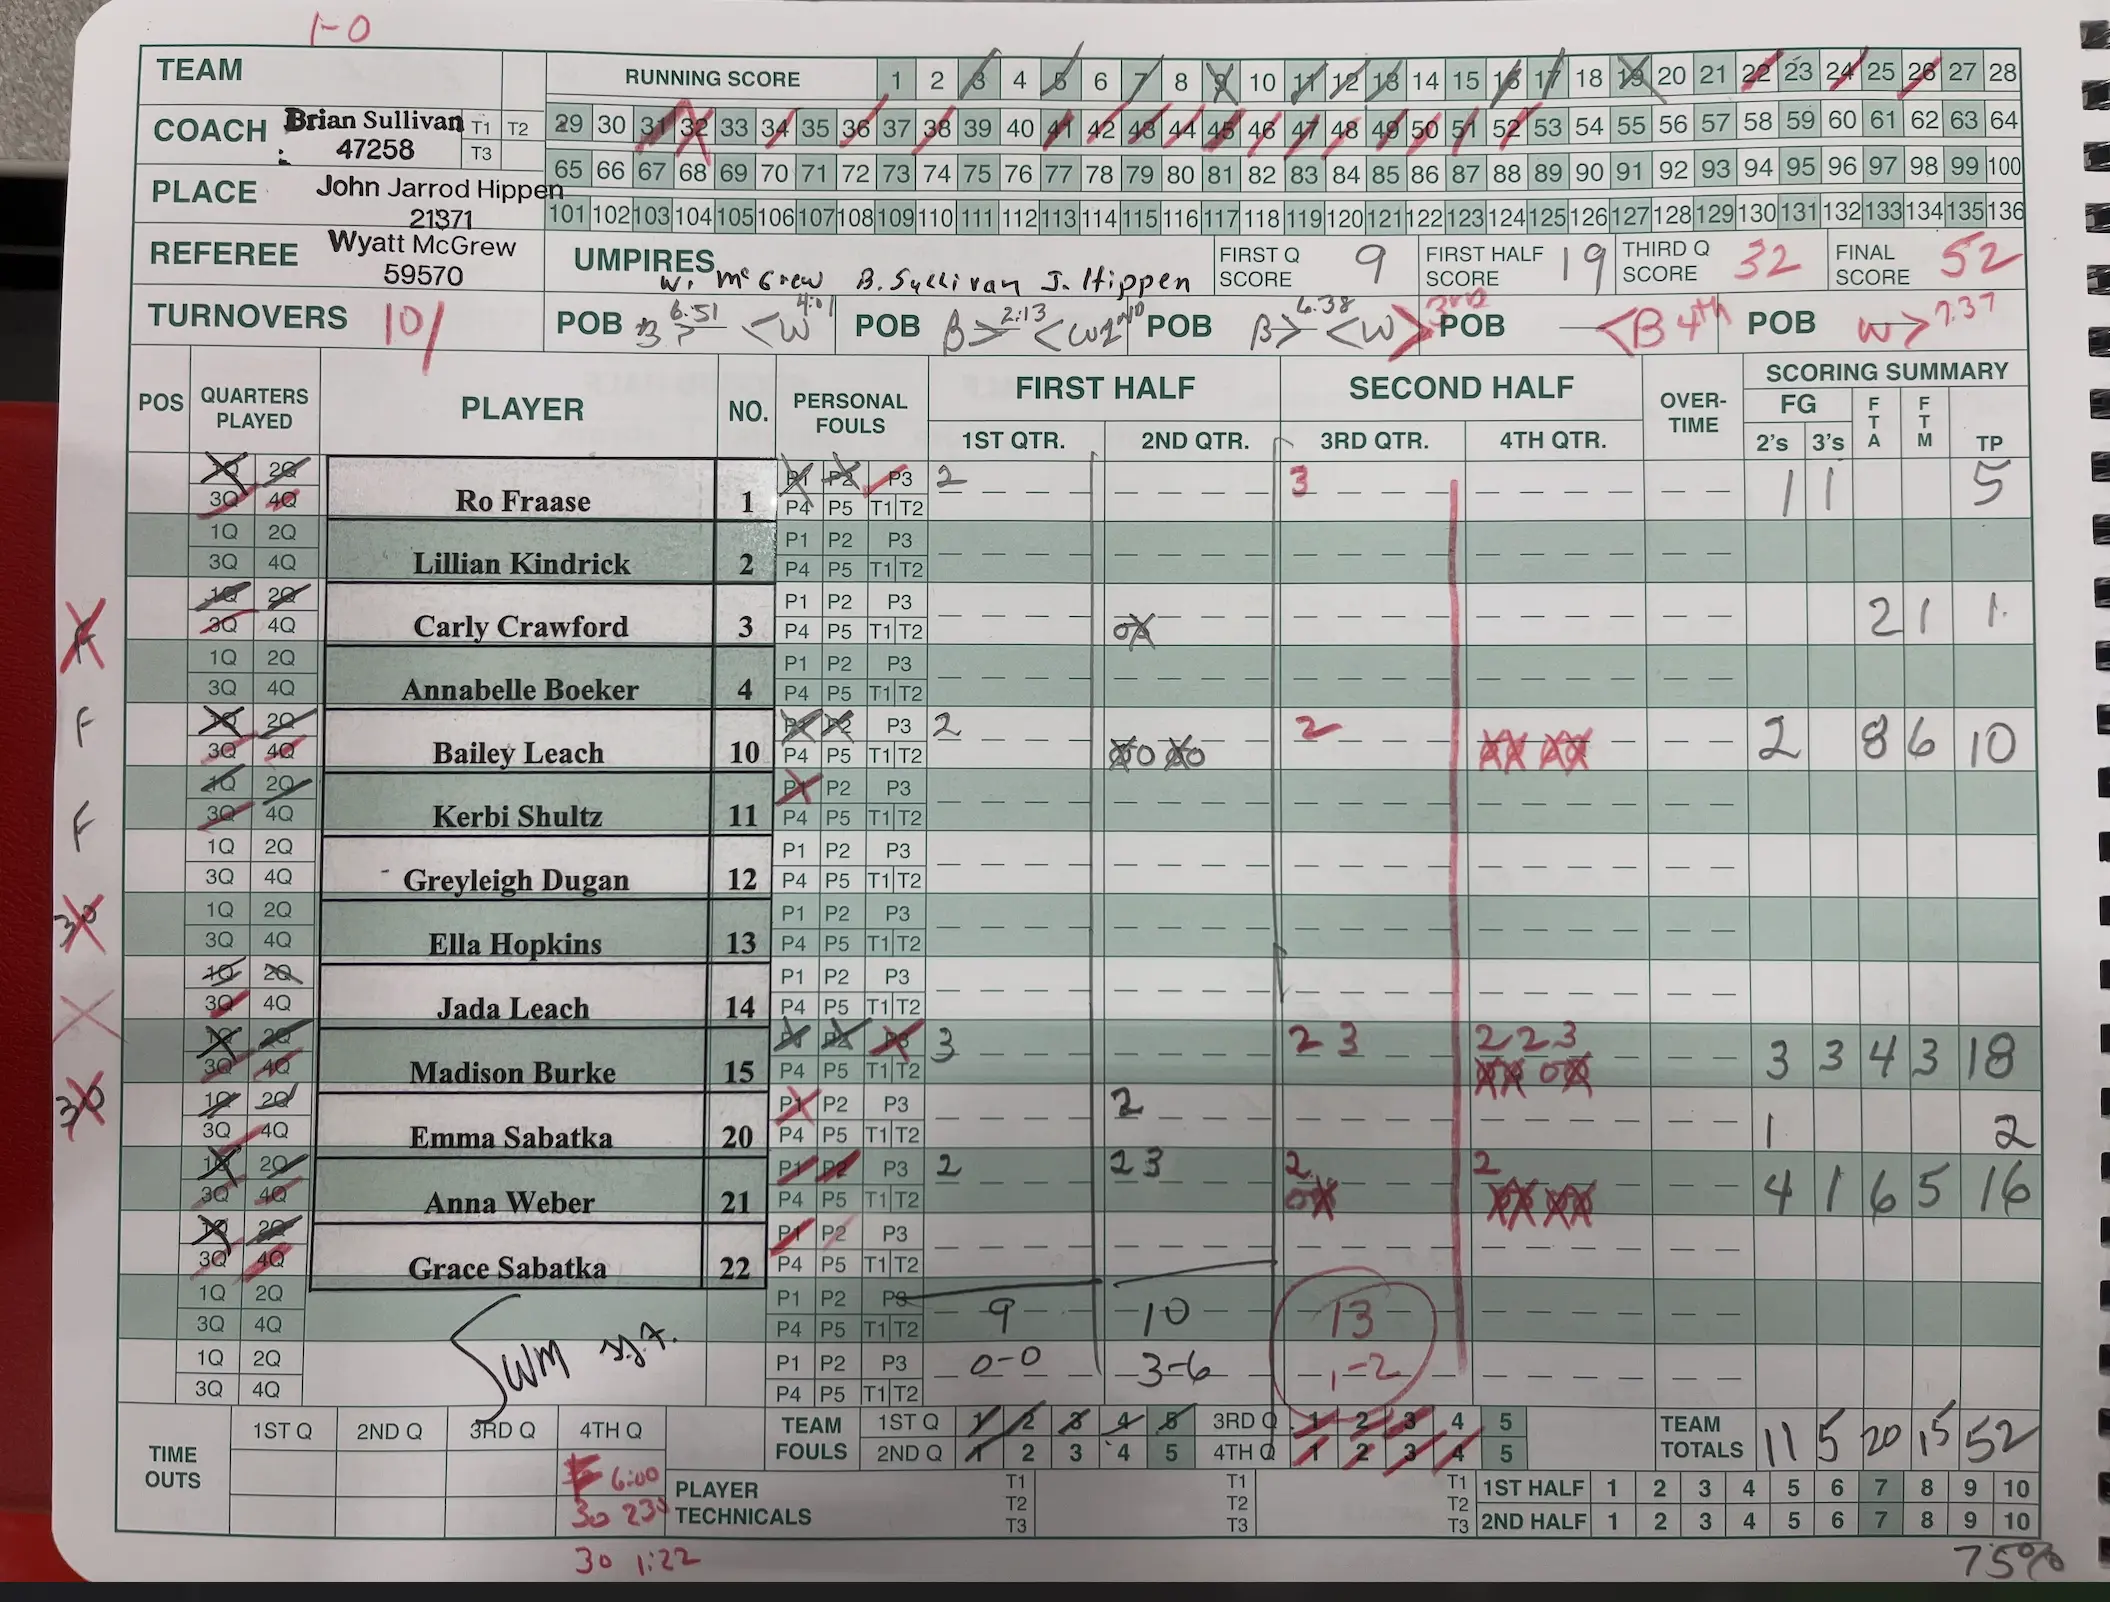 1-0
TEAM RUNNING SCORE 1 2 3 4 5 6 7 8 9 10 11 12 13 14 15 16 17 18 19 20 21 22 23 24 25 26 27 28
COACH Brian Sullivan 47258 T1 T2 T3 29 30 31 32 33 34 35 36 37 38 39 40 41 42 43 44 45 46 47 48 49 50 51 52 53 54 55 56 57 58 59 60 61 62 63 64
65 66 67 68 69 70 71 72 73 74 75 76 77 78 79 80 81 82 83 84 85 86 87 88 89 90 91 92 93 94 95 96 97 98 99 100
PLACE John Jarrod Hippen 21371 101 102 103 104 105 106 107 108 109 110 111 112 113 114 115 116 117 118 119 120 121 122 123 124 125 126 127 128 129 130 131 132 133 134 135 136
REFEREE Wyatt McGrew 59570 UMPIRES W. McGrew B. Sullivan J. Hippen FIRST Q SCORE 9 FIRST HALF SCORE 19 THIRD Q SCORE 32 FINAL SCORE 52
TURNOVERS 10/ POB B > 6:51 < W 4:01 POB B > 2:13 < W 2ND POB B > 6:38 < W > 3RD POB < B 4th POB W > 7:37
POS QUARTERS PLAYED PLAYER NO. PERSONAL FOULS FIRST HALF SECOND HALF OVER-TIME SCORING SUMMARY
1ST QTR. 2ND QTR. 3RD QTR. 4TH QTR. FG 2's 3's FTA FTM TP
1Q 2Q P1 P2 P3 2 3 1 1 5
3Q 4Q Ro Fraase 1 P4 P5 T1 T2
1Q 2Q P1 P2 P3
3Q 4Q Lillian Kindrick 2 P4 P5 T1 T2
1Q 2Q P1 P2 P3 2 1 1
F 3Q 4Q Carly Crawford 3 P4 P5 T1 T2 OX
1Q 2Q P1 P2 P3
3Q 4Q Annabelle Boeker 4 P4 P5 T1 T2
F 1Q 2Q P1 P2 P3 2 2 2 8 6 10
3Q 4Q Bailey Leach 10 P4 P5 T1 T2 XO XO XX XX
1Q 2Q P1 P2 P3
F 3Q 4Q Kerbi Shultz 11 P4 P5 T1 T2
1Q 2Q P1 P2 P3
3Q 4Q Greyleigh Dugan 12 P4 P5 T1 T2
30 1Q 2Q P1 P2 P3
3Q 4Q Ella Hopkins 13 P4 P5 T1 T2
1Q 2Q P1 P2 P3
X 3Q 4Q Jada Leach 14 P4 P5 T1 T2
1Q 2Q P1 P2 P3 3 2 3 2 2 3 3 3 4 3 18
3Q 4Q Madison Burke 15 P4 P5 T1 T2 XX OX
30 1Q 2Q P1 P2 P3 2 1 2
3Q 4Q Emma Sabatka 20 P4 P5 T1 T2
1Q 2Q P1 P2 P3 2 2 3 2 2 4 1 6 5 16
3Q 4Q Anna Weber 21 P4 P5 T1 T2 OX XX XX
1Q 2Q P1 P2 P3
3Q 4Q Grace Sabatka 22 P4 P5 T1 T2
1Q 2Q P1 P2 P3 9 10 13
3Q 4Q P4 P5 T1 T2
1Q 2Q P1 P2 P3 0-0 3-6 1-2
3Q 4Q P4 P5 T1 T2
TIME OUTS 1ST Q 2ND Q 3RD Q 4TH Q TEAM FOULS 1ST Q 1 2 3 4 5 3RD Q 1 2 3 4 5 TEAM TOTALS 11 5 20 15 52
2ND Q 1 2 3 4 5 4TH Q 1 2 3 4 5
F 6:00 PLAYER TECHNICALS T1 T1 T1 1ST HALF 1 2 3 4 5 6 7 8 9 10
30 T2 T2 T2
T3 T3 T3 2ND HALF 1 2 3 4 5 6 7 8 9 10
30 1:22
75%